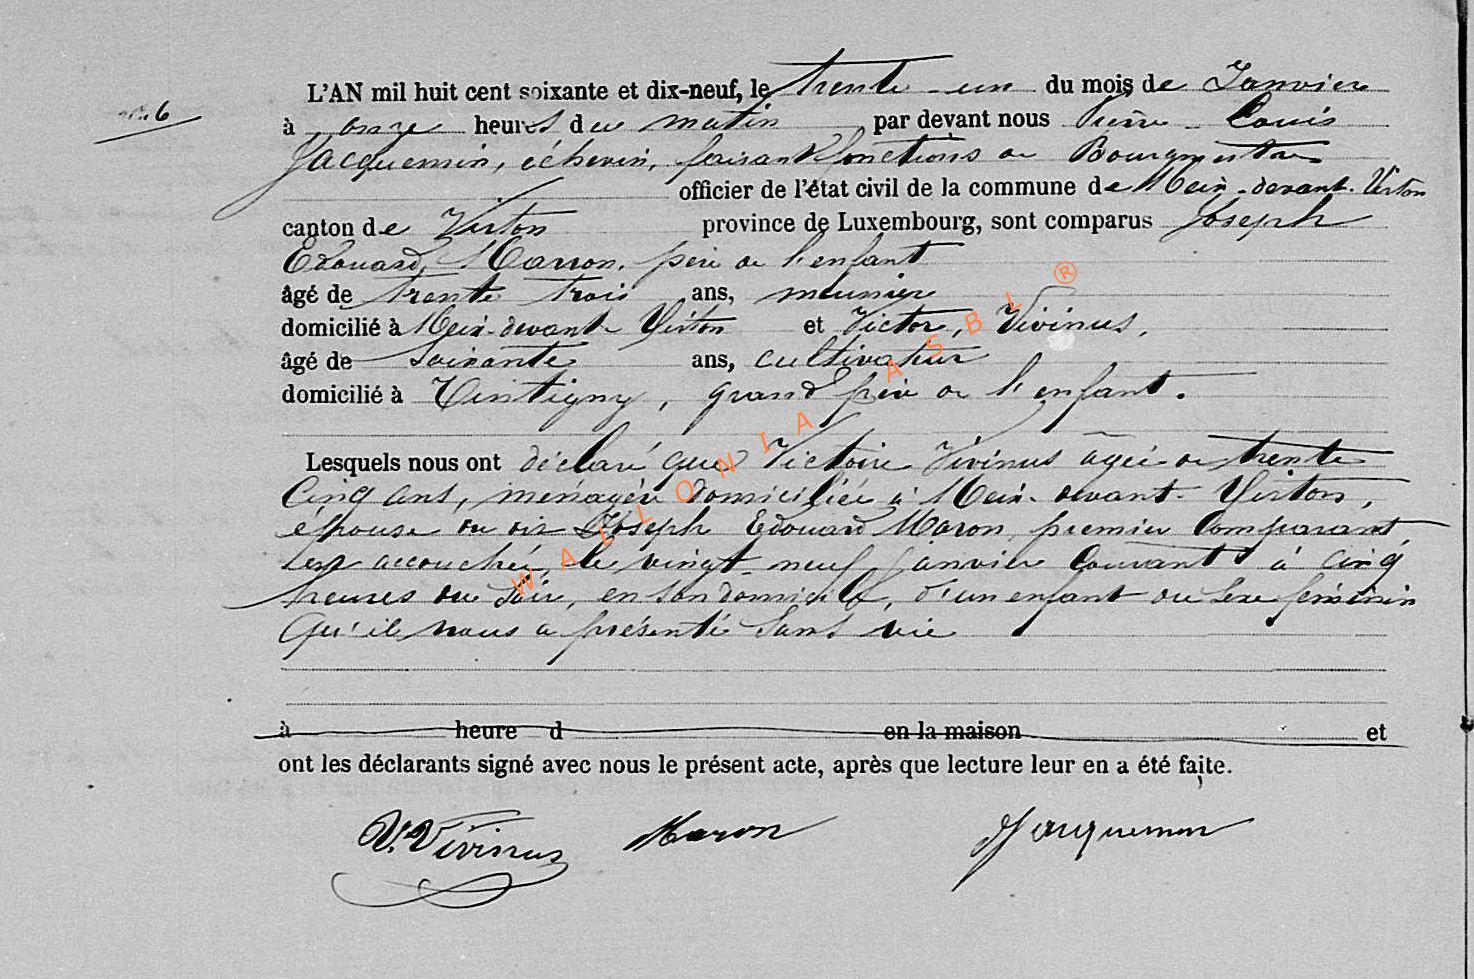 n° 6
L'AN mil huit cent soixante et dix-neuf, le trente-un du mois de Janvier
à onze heures du matin par devant nous Pierre-Louis
Jacquemin, échevin, faisant fonctions de Bourgmestre
officier de l'état civil de la commune de Meix-devant-Virton
canton de Virton province de Luxembourg, sont comparus Joseph
Edouard, Maron, père de l'enfant
âgé de trente trois ans, meunier
domicilié à Meix-devant-Virton et Victor, Vivinus,
âgé de soixante ans, cultivateur
domicilié à Tintigny, grand père de l'enfant.
Lesquels nous ont déclaré que Victoire Vivinus âgée de trente
cinq ans, ménagère domiciliée à Meix-devant-Virton,
épouse du dit Joseph Edouard Maron, premier comparant
est accouchée, le vingt-neuf janvier courant à cinq
heures du soir, en son domicile, d'un enfant du sexe féminin
qu'il nous a présenté sans vie
à heure d en la maison et
ont les déclarants signé avec nous le présent acte, après que lecture leur en a été faite.
V. Vivinus Maron Jacquemin
WALLONIA ASBL ®